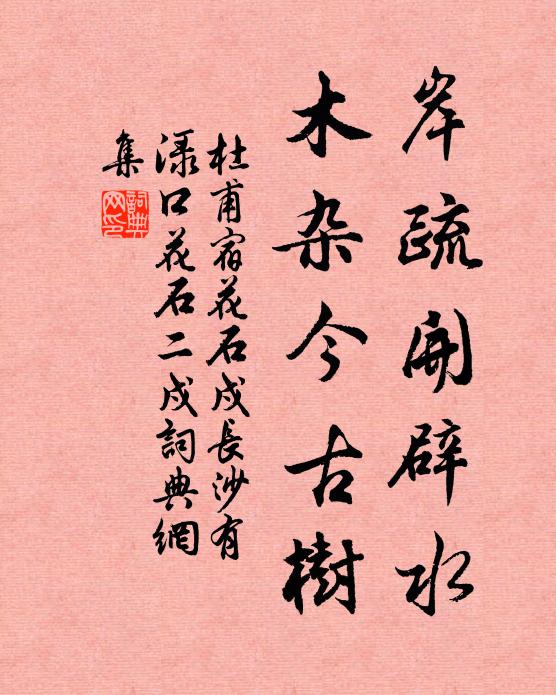 岸疏開辟水
木杂今古樹
杜甫宿花石戍長沙有
渌口花石二戍詞典網
集
詞典
网印